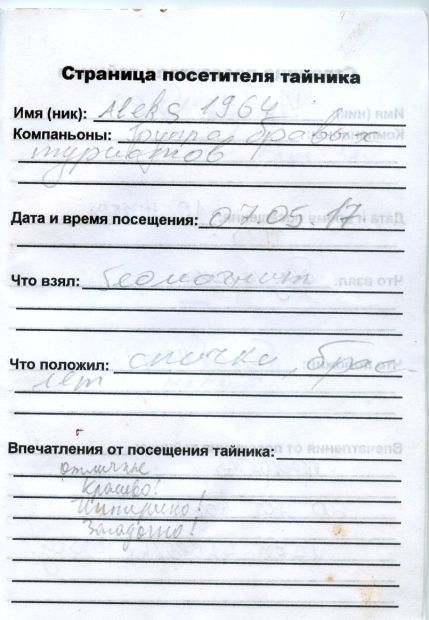 Страница посетителя тайника
Имя (ник): Aleks 1964
Компаньоны: Группа бравых
туристов
Дата и время посещения: 07.05.17
Что взял: геомагнит
Что положил: спички, брас-
лет
Впечатления от посещения тайника:
отличные
Красиво!
Загадочно!